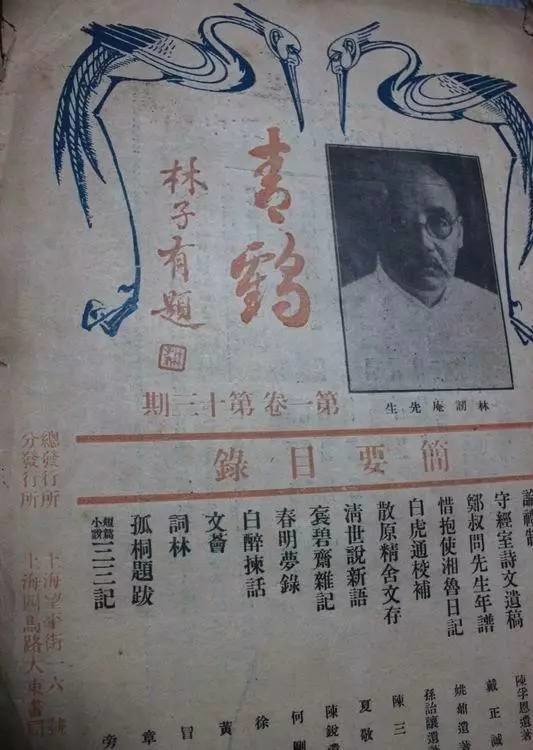 青鶴
林子有題
林訒庵先生
第一卷第十三期
簡要目錄
論禮制
守經室詩文遺稿 陳孚恩遺著
鄭叔問先生年譜 戴正誠
惜抱使湘魯日記 姚鼐遺著
白虎通校補 孫詒讓遺
散原精舍文存 陳三
清世說新語 夏敬
袌碧齋雜記 陳銳遺
春明夢錄 何剛
白醉揀話 徐
文薈 黃
詞林 冒
孤桐題跋 章
短篇小說 三三記 旁
總發行所 上海望平街一六 號
分發行所 上海四馬路大東書局